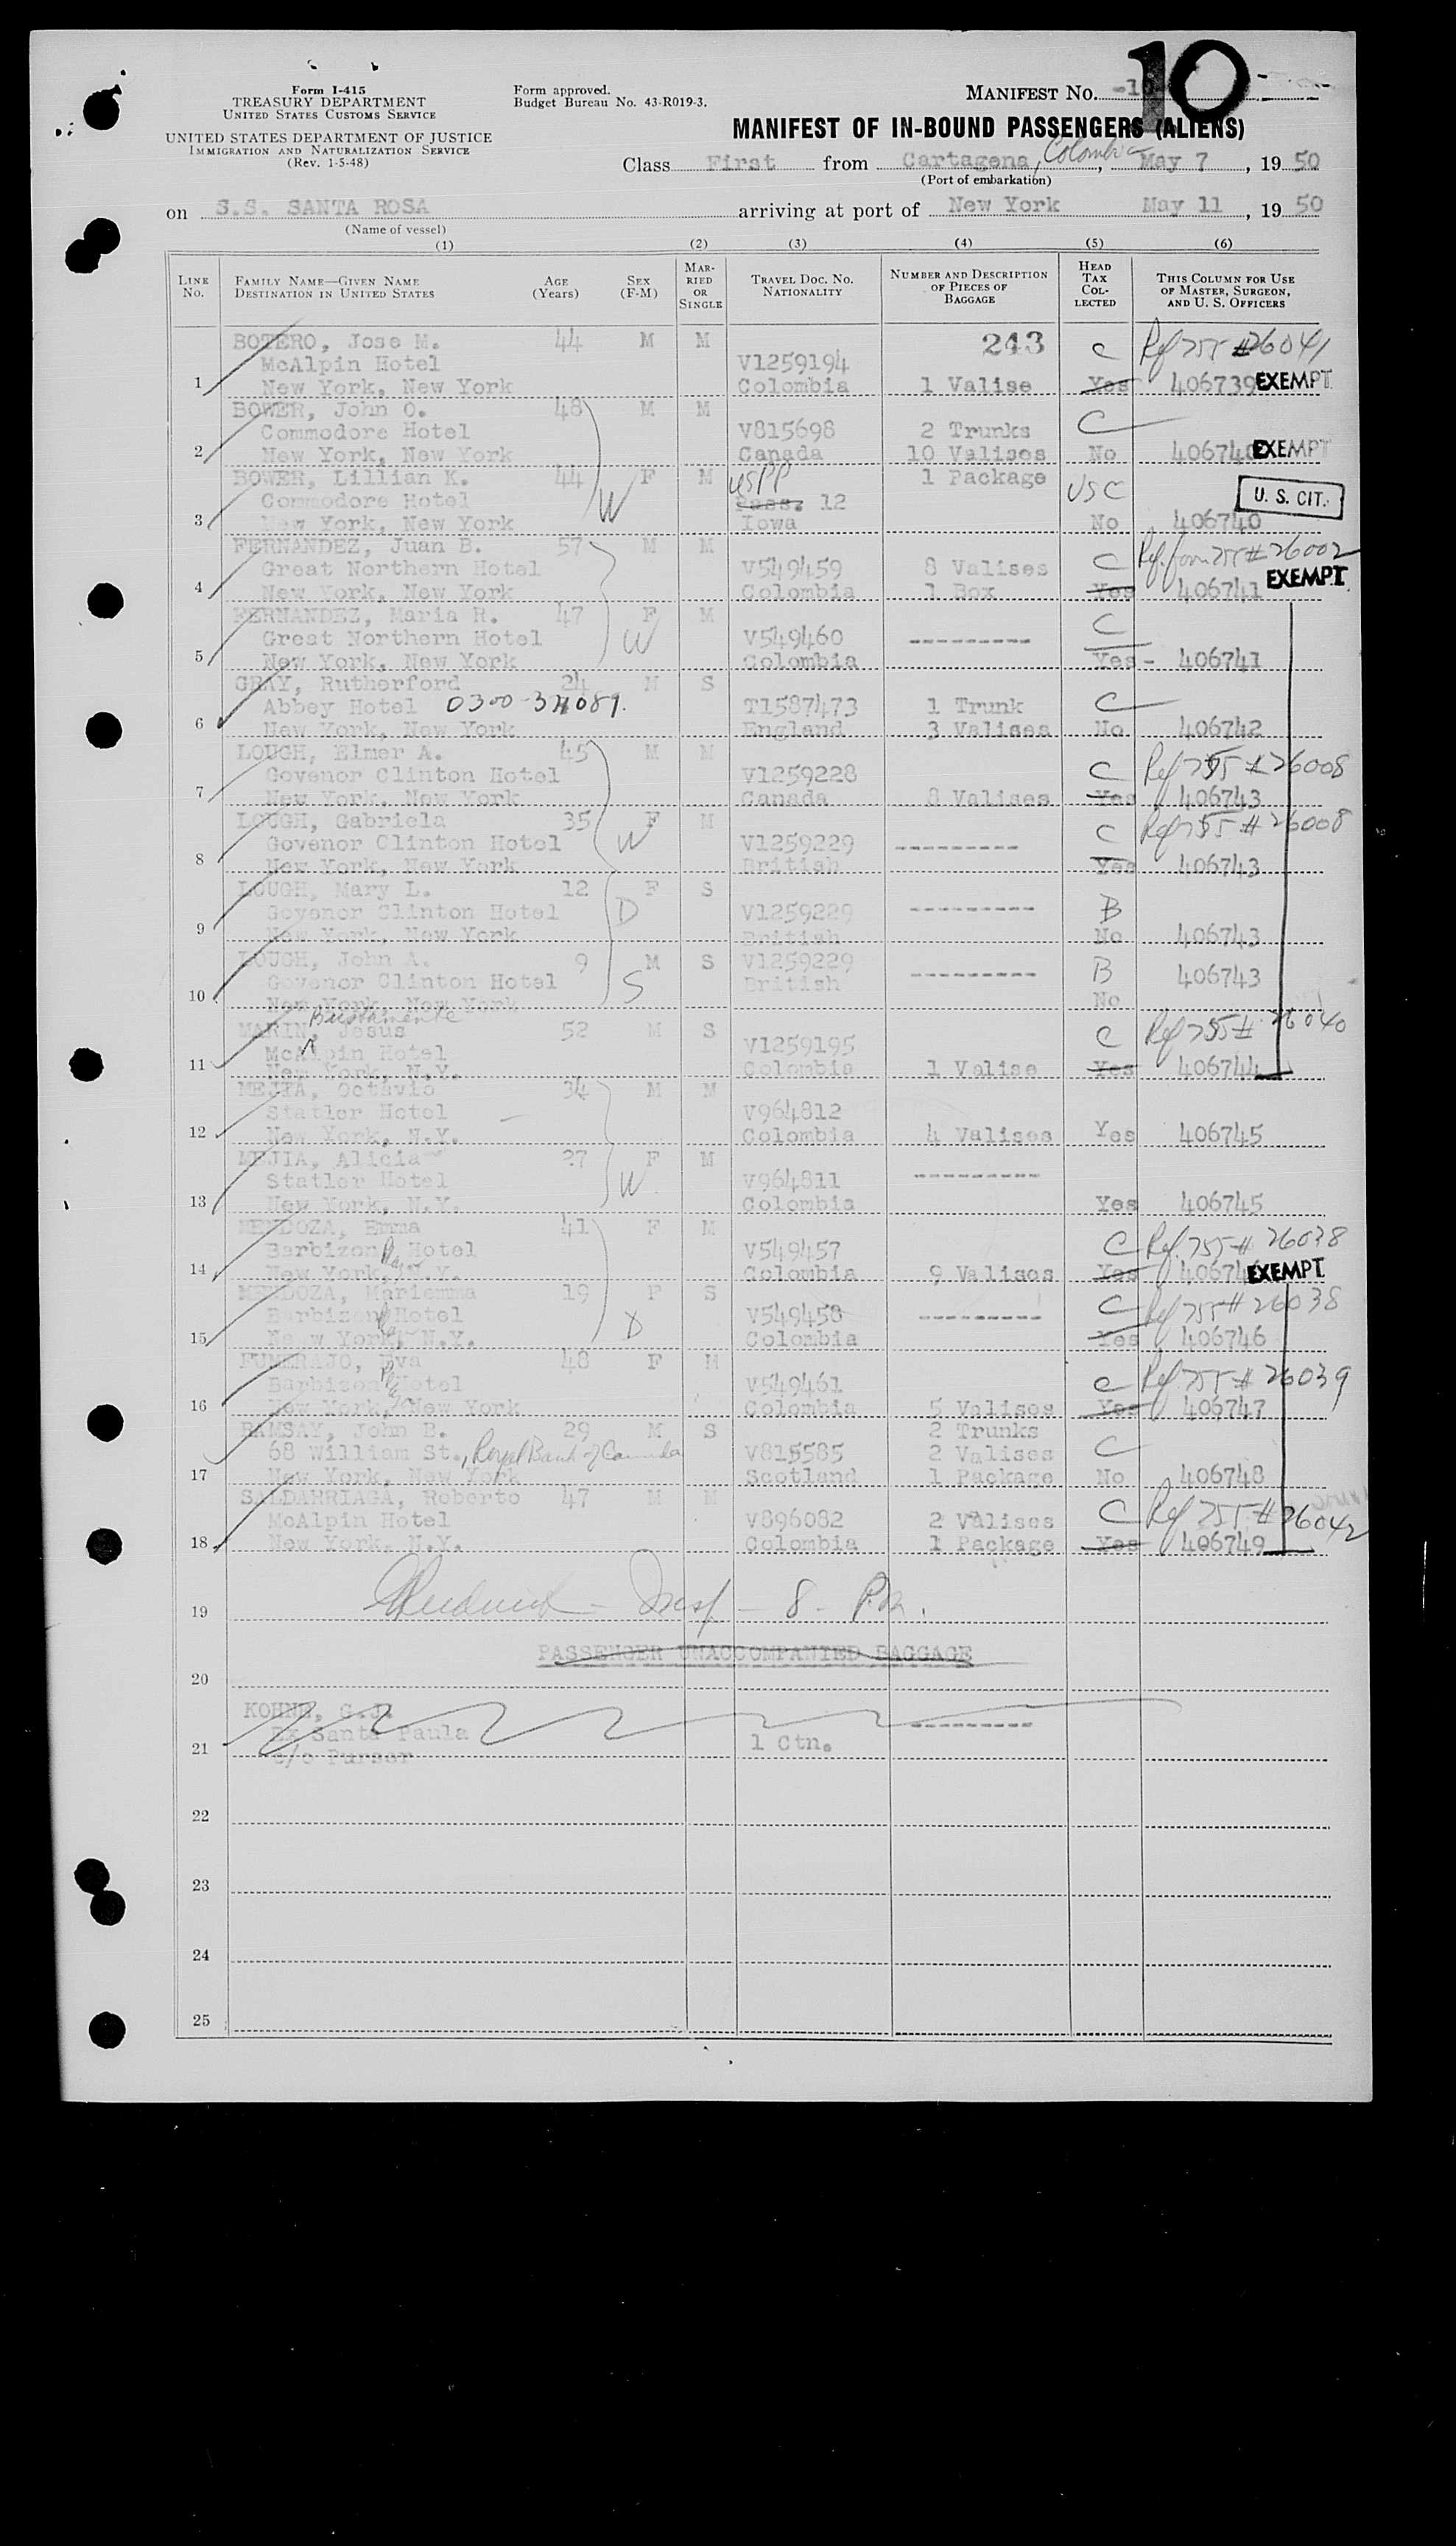 Form I-415
TREASURY DEPARTMENT
UNITED STATES CUSTOMS SERVICE
UNITED STATES DEPARTMENT OF JUSTICE
IMMIGRATION AND NATURALIZATION SERVICE
(Rev. 1-5-48)
Form approved.
Budget Bureau No. 43-R019-3.
MANIFEST NO. 10
MANIFEST OF IN-BOUND PASSENGERS (ALIENS)
Class First from Cartagena, Colombia, May 7, 19 50
(Port of embarkation)
on S.S. SANTA ROSA arriving at port of New York May 11, 19 50
(Name of vessel)
(1) (2) (3) (4) (5) (6)
LINE NO. FAMILY NAME—GIVEN NAME DESTINATION IN UNITED STATES AGE (YEARS) SEX (F-M) MARRIED OR SINGLE TRAVEL DOC. NO. NATIONALITY NUMBER AND DESCRIPTION OF PIECES OF BAGGAGE HEAD TAX COLLECTED THIS COLUMN FOR USE OF MASTER, SURGEON, AND U. S. OFFICERS
BOTERO, Jose M. 44 M M 243 C Ref 755 #26041
McAlpin Hotel V1259194
1 New York, New York Colombia 1 Valise Yes 406739 EXEMPT
BOWER, John O. 48 M M C
Commodore Hotel V815698 2 Trunks
2 New York, New York Canada 10 Valises No 406740 EXEMPT
BOWER, Lillian K. 44 F M USPP 1 Package USC
Commodore Hotel W Pass. 12 U. S. CIT.
3 New York, New York Iowa No 406740
FERNANDEZ, Juan B. 57 M M C Ref. form 755 #26002
Great Northern Hotel V549459 8 Valises
4 New York, New York Colombia 1 Box Yes 406741 EXEMPT
FERNANDEZ, Maria R. 47 F M C
Great Northern Hotel W V549460 ----------
5 New York, New York Colombia Yes - 406741
GRAY, Rutherford 24 M S
Abbey Hotel 0300-34089. T1587473 1 Trunk C
6 New York, New York England 3 Valises No 406742
LOUGH, Elmer A. 45 M M Ref 755 #26008
Govenor Clinton Hotel V1259228 C
7 New York, New York Canada 8 Valises Yes 406743
LOUGH, Gabriela 35 F M C Ref 755 #26008
Govenor Clinton Hotel W V1259229 ----------
8 New York, New York British Yes 406743
LOUGH, Mary L. 12 F S
Govenor Clinton Hotel D V1259229 ---------- B
9 New York, New York British No 406743
LOUGH, John A. 9 M S V1259229 B
Govenor Clinton Hotel S British ---------- 406743
10 New York, New York No
Bustamente
MARIN, Jesus 52 M S C Ref 755# 26040
McAlpin Hotel V1259195
11 New York, N.Y. Colombia 1 Valise Yes 406744
MEJIA, Octavio 34 M M
Statler Hotel V964812
12 New York, N.Y. Colombia 4 Valises Yes 406745
MEJIA, Alicia 27 F M
Statler Hotel W V964811 ----------
13 New York, N.Y. Colombia Yes 406745
MENDOZA, Emma 41 F M C Ref. 755# 26038
Barbizon Hotel V549457
14 New York, N.Y. Colombia 9 Valises Yes 406746 EXEMPT
MENDOZA, Mariemma 19 F S C Ref 755# 26038
Barbizon Hotel D V549458 ----------
15 New York, N.Y. Colombia Yes 406746
FUMERAJO, Eva 48 F M
Barbizon Hotel V549461 C Ref 755# 26039
16 New York, New York Colombia 5 Valises Yes 406747
RAMSAY, John B. 29 M S 2 Trunks
68 William St., Royal Bank of Canada V815585 2 Valises C
17 New York, New York Scotland 1 Package No 406748
SALDARRIAGA, Roberto 47 M M C Ref 755# 26042
McAlpin Hotel V896082 2 Valises
18 New York, N.Y. Colombia 1 Package Yes 406749
19 Insp - 8 - P.M.
PASSENGER UNACCOMPANIED BAGGAGE
20
KOHNE, G.J.
Ex Santa Paula ----------
21 c/o Purser 1 Ctn.
22
23
24
25